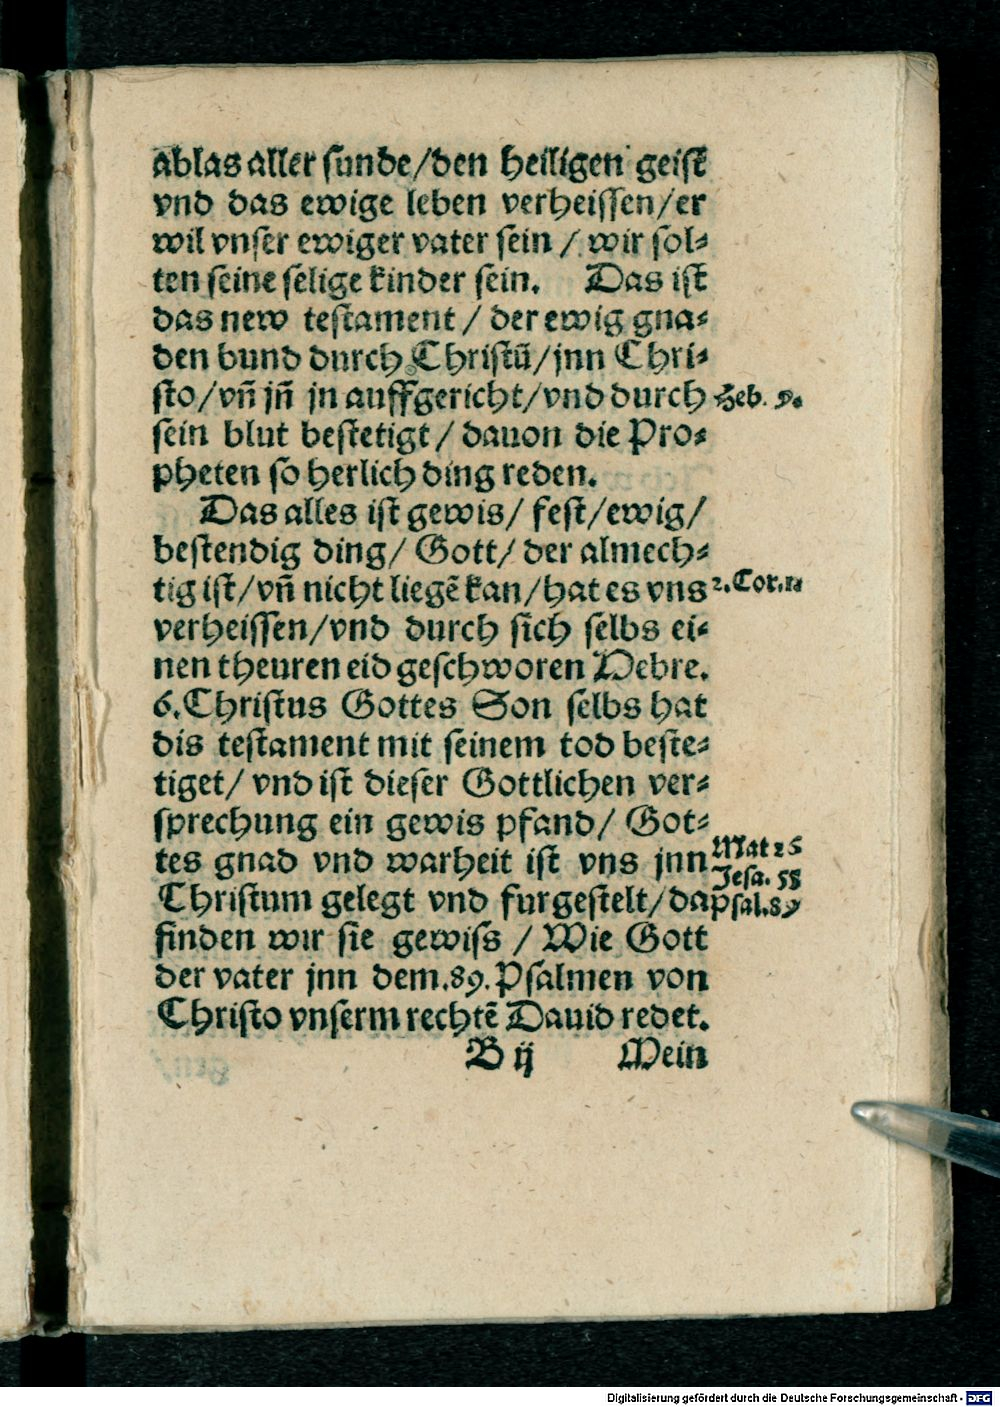 ablas aller sunde/den heiligen geist
vnd das ewige leben verheissen/er
wil vnser ewiger vater sein / wir sol⸗
ten seine selige kinder sein. Das ist
das new testament / der ewig gna⸗
den bund durch Christū/jnn Chri⸗
sto/vñ jñ jn auffgericht/vnd durch
Heb. 9.
sein blut bestetigt/ dauon die Pro⸗
pheten so herlich ding reden.
Das alles ist gewis/ fest/ewig/
bestendig ding/ Gott/ der almech⸗
tig ist/vñ nicht liegē kan/hat es vns
2.Cor.1
verheissen/vnd durch sich selbs ei⸗
nen theuren eid geschworen Hebre.
6.Christus Gottes Son selbs hat
dis testament mit seinem tod beste⸗
tiget/ vnd ist dieser Gottlichen ver⸗
sprechung ein gewis pfand/ Got⸗
tes gnad vnd warheit ist vns jnn
Mat 26
Jesa. 55
Christum gelegt vnd furgestelt/da
Psal.89
finden wir sie gewiss / Wie Gott
der vater jnn dem.89.Psalmen von
Christo vnserm rechtē Dauid redet.
B ij Mein
Digitalisierung gefördert durch die Deutsche Forschungsgemeinschaft - DFG